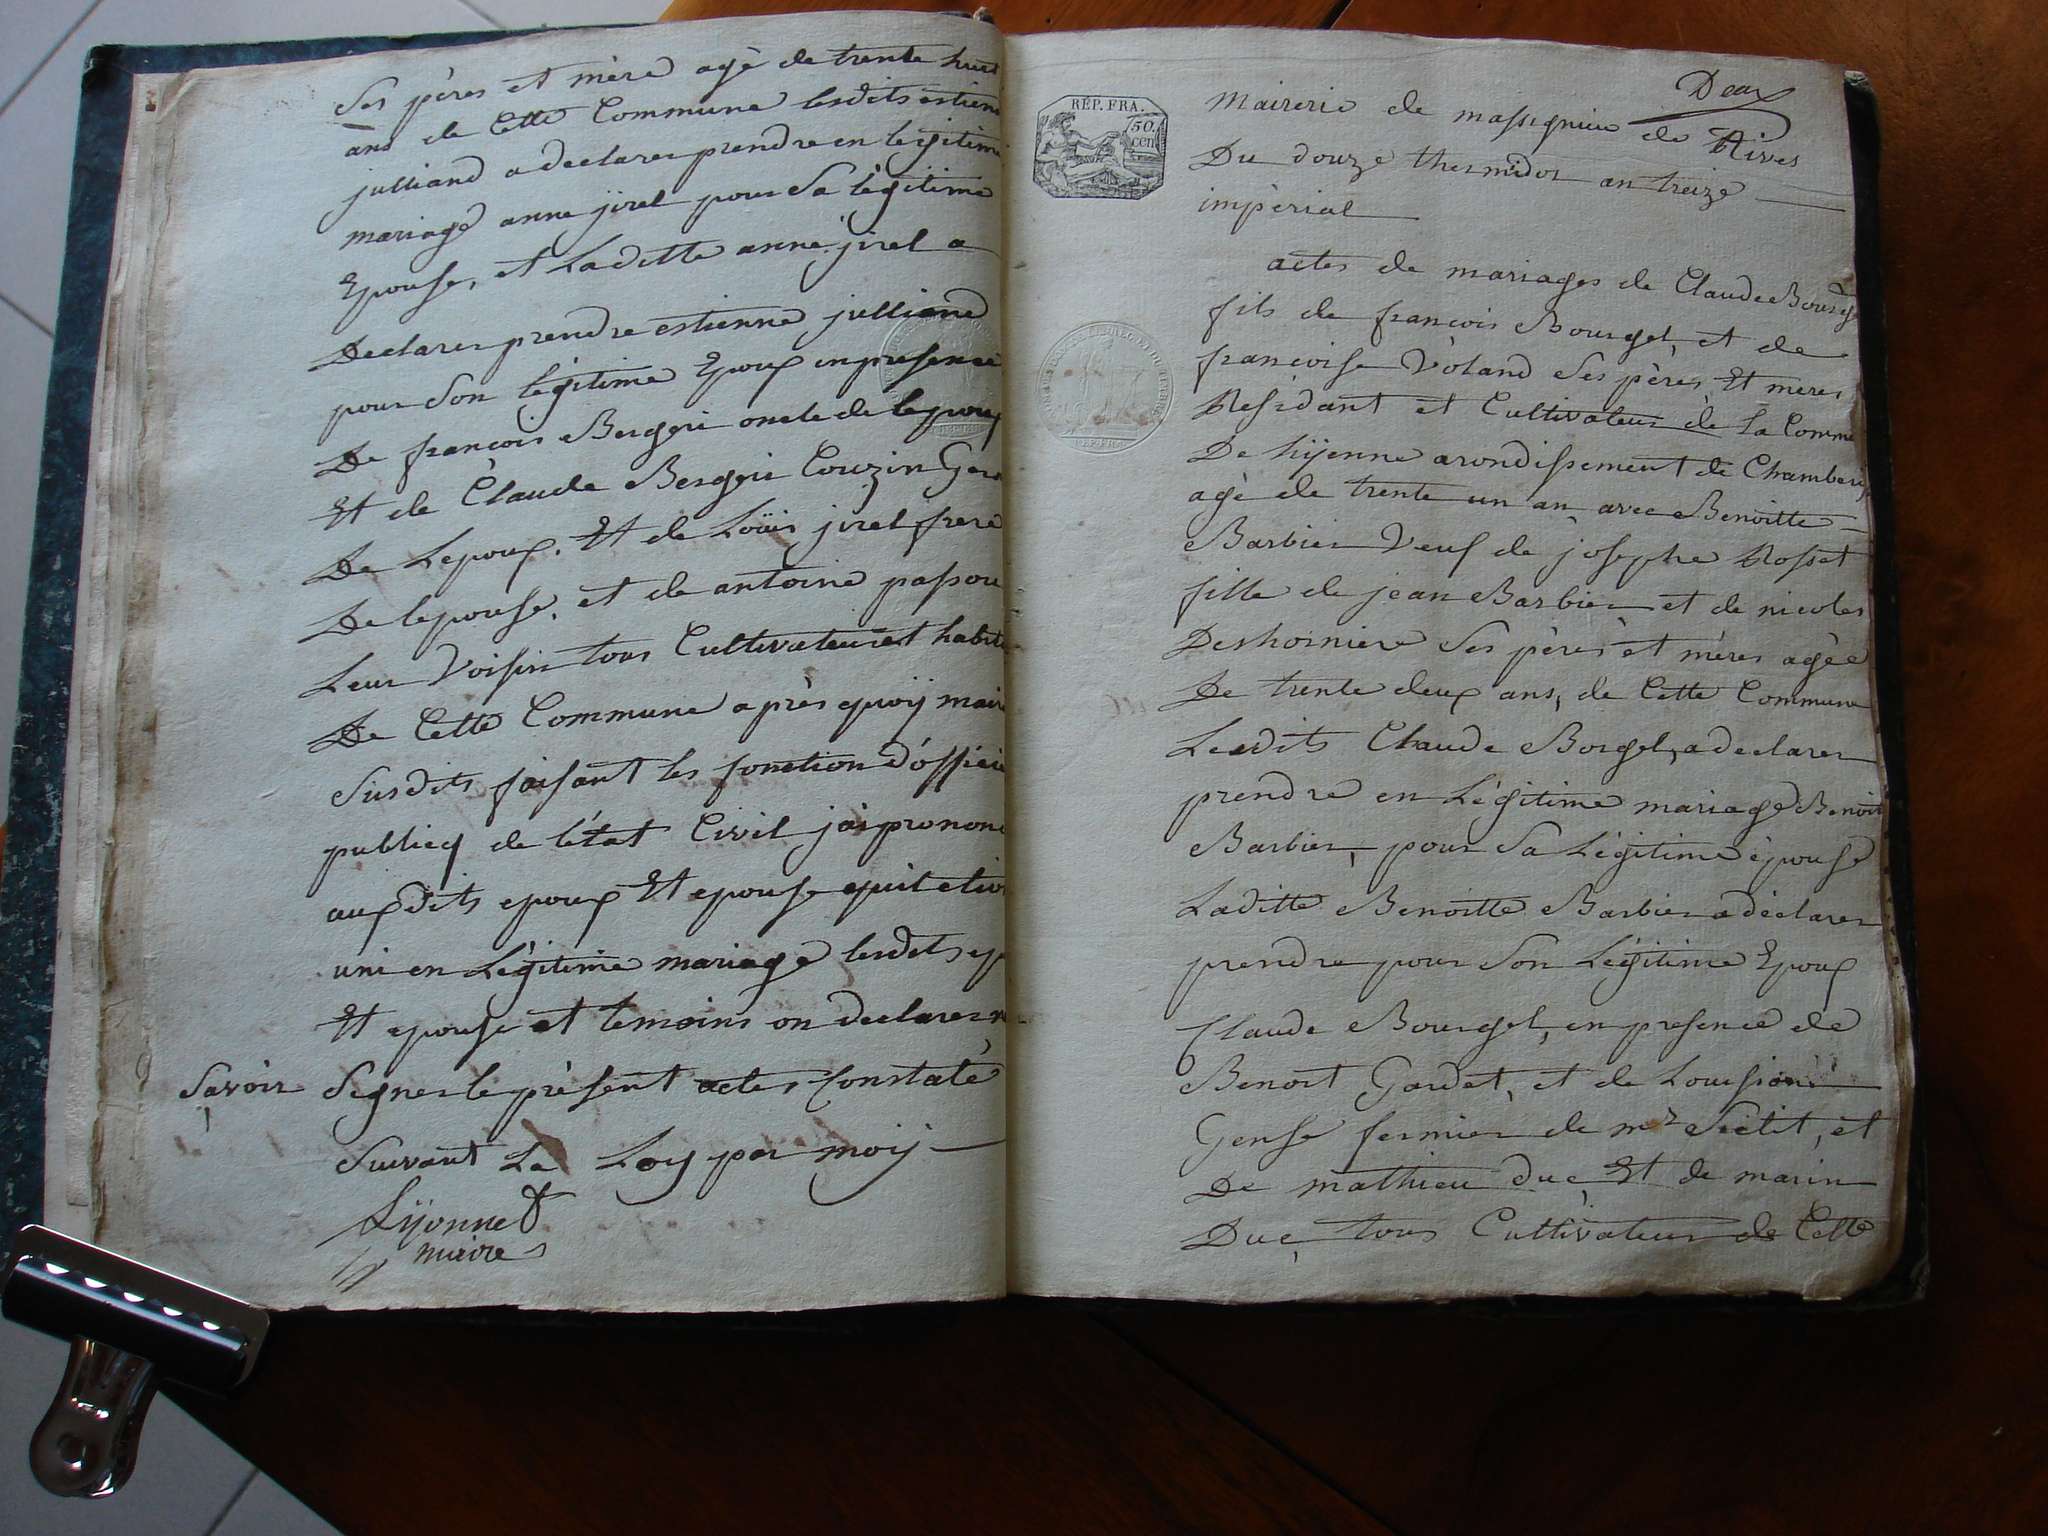 Ses pères et mère agè de trente huit
ans de Cette Commune lesdits estienne
julliand a declarer prendre en legitime
mariage anne jirel pour Sa légitime
Epouse, et Laditte anne jirel a
Declarer prendre estienne julliand
pour Son légitime Epoux en presence
De francois Bergeri oncle de lepoux
Et de Claude Bergeri Couzin Ger
De Lepoux. Et de Loüis jirel frere
De lepouse, et de antoine passou
Leur Voisin tous Cultivateur et habit
De Cette Commune après quoij maire
Susdits faisant les fonction d'officie
publicq de l'état Civil j'ai prononc
aux dits epoux Et epouse quil etion
uni en Légitime mariage lesdits ep
Et epouse et temoins on declarer n
Savoir Signer le présent actes Constaté
Suivant La Loy par moij
Lijonnet
maire
Deux
RÉP. FRA.
50.
cen
Mairerie de massignieu de Rives
Du douze thermidor an treize
impérial
actes de mariages de Claude Bourg
fils de francois Bourgel, et de
francoise Voland Ses pères Et meres
Residant et Cultivateur de La Comm
De hijenne arondissement de Chamberi
agé de trente un an avec Benoitte
Barbier Veuf de josephe Rosset
fille de jean Barbier et de nicolas
Deshorniere Ses pères et mères agèe
De trente deux ans, de Cette Commune
Lesdits Claude Borgel, a declarer
prendre en Légitime mariage Benoit
Barbier, pour Sa Légitime épouse
Laditte Benoitte Barbier a déclarer
prendre pour Son Légitime Epoux
Claude Bourgel, en presence de
Benoit Gardet, et de
Gense fermier de mr et
De mathieu duc Et de marin
Duc, tous Cultivateur de Cette